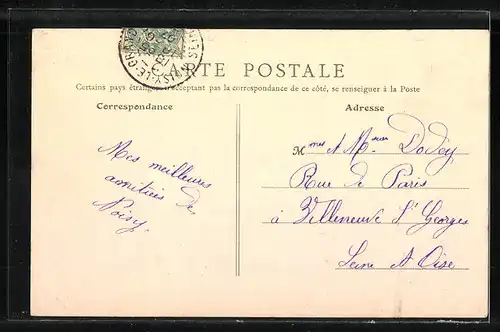 CARTE POSTALE
Certains pays étrangers n'acceptant pas la correspondance de ce côté, se renseigner à la Poste
Correspondance
Adresse
Mes meilleures
amitiés de
Noisy.
Mmes & Mr Dodey
Rue de Paris
à Villeneuve St Georges
Seine & Oise